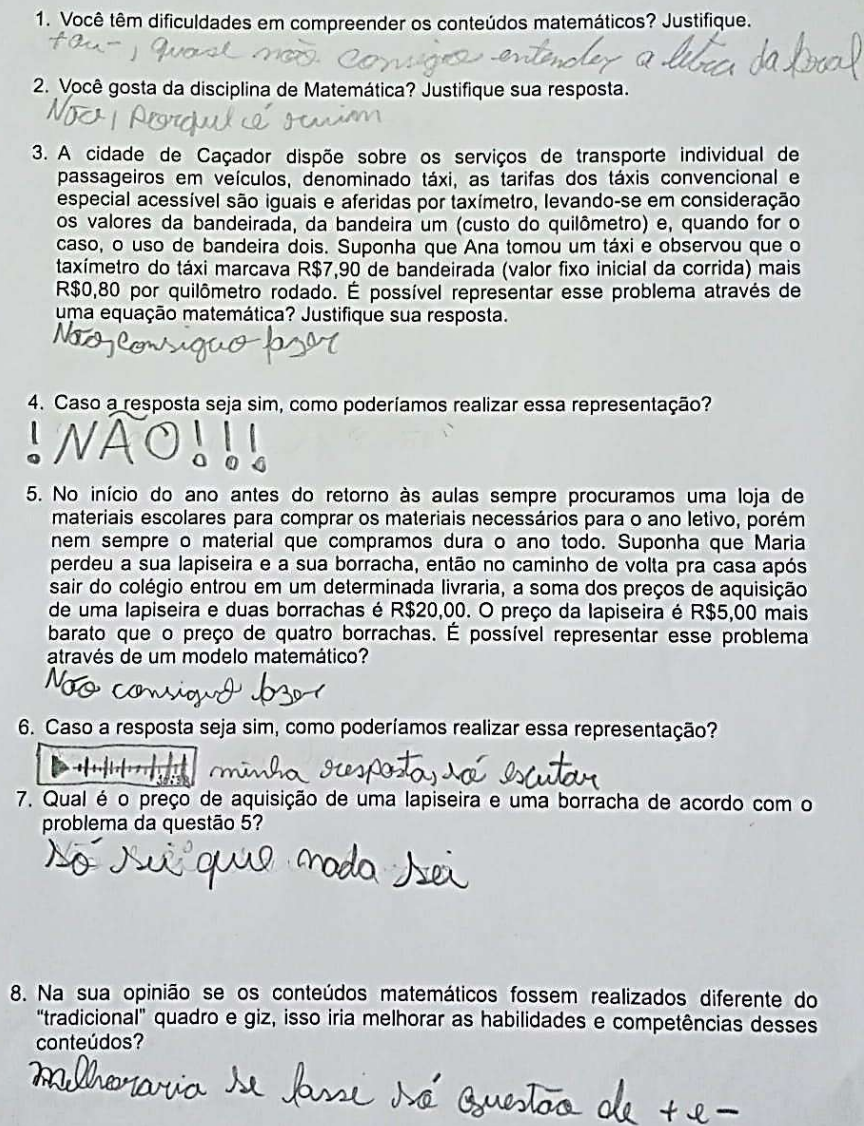 1. Você têm dificuldades em compreender os conteúdos matemáticos? Justifique.
+ou-, quase não consigo entender a letra da
2. Você gosta da disciplina de Matemática? Justifique sua resposta.
Não, porque é ruim
3. A cidade de Caçador dispõe sobre os serviços de transporte individual de
passageiros em veículos, denominado táxi, as tarifas dos táxis convencional e
especial acessível são iguais e aferidas por taxímetro, levando-se em consideração
os valores da bandeirada, da bandeira um (custo do quilômetro) e, quando for o
caso, o uso de bandeira dois. Suponha que Ana tomou um táxi e observou que o
taxímetro do táxi marcava R$7,90 de bandeirada (valor fixo inicial da corrida) mais
R$0,80 por quilômetro rodado. É possível representar esse problema através de
uma equação matemática? Justifique sua resposta.
Não, consiguo fazer
4. Caso a resposta seja sim, como poderíamos realizar essa representação?
! NÃO!!!
5. No início do ano antes do retorno às aulas sempre procuramos uma loja de
materiais escolares para comprar os materiais necessários para o ano letivo, porém
nem sempre o material que compramos dura o ano todo. Suponha que Maria
perdeu a sua lapiseira e a sua borracha, então no caminho de volta pra casa após
sair do colégio entrou em um determinada livraria, a soma dos preços de aquisição
de uma lapiseira e duas borrachas é R$20,00. O preço da lapiseira é R$5,00 mais
barato que o preço de quatro borrachas. É possível representar esse problema
através de um modelo matemático?
Não consiguo fazer
6. Caso a resposta seja sim, como poderíamos realizar essa representação?
minha resposta, só escutar
7. Qual é o preço de aquisição de uma lapiseira e uma borracha de acordo com o
problema da questão 5?
Só sei que nada sei
8. Na sua opinião se os conteúdos matemáticos fossem realizados diferente do
"tradicional" quadro e giz, isso iria melhorar as habilidades e competências desses
conteúdos?
Melhoraria se fosse só questão de + e -